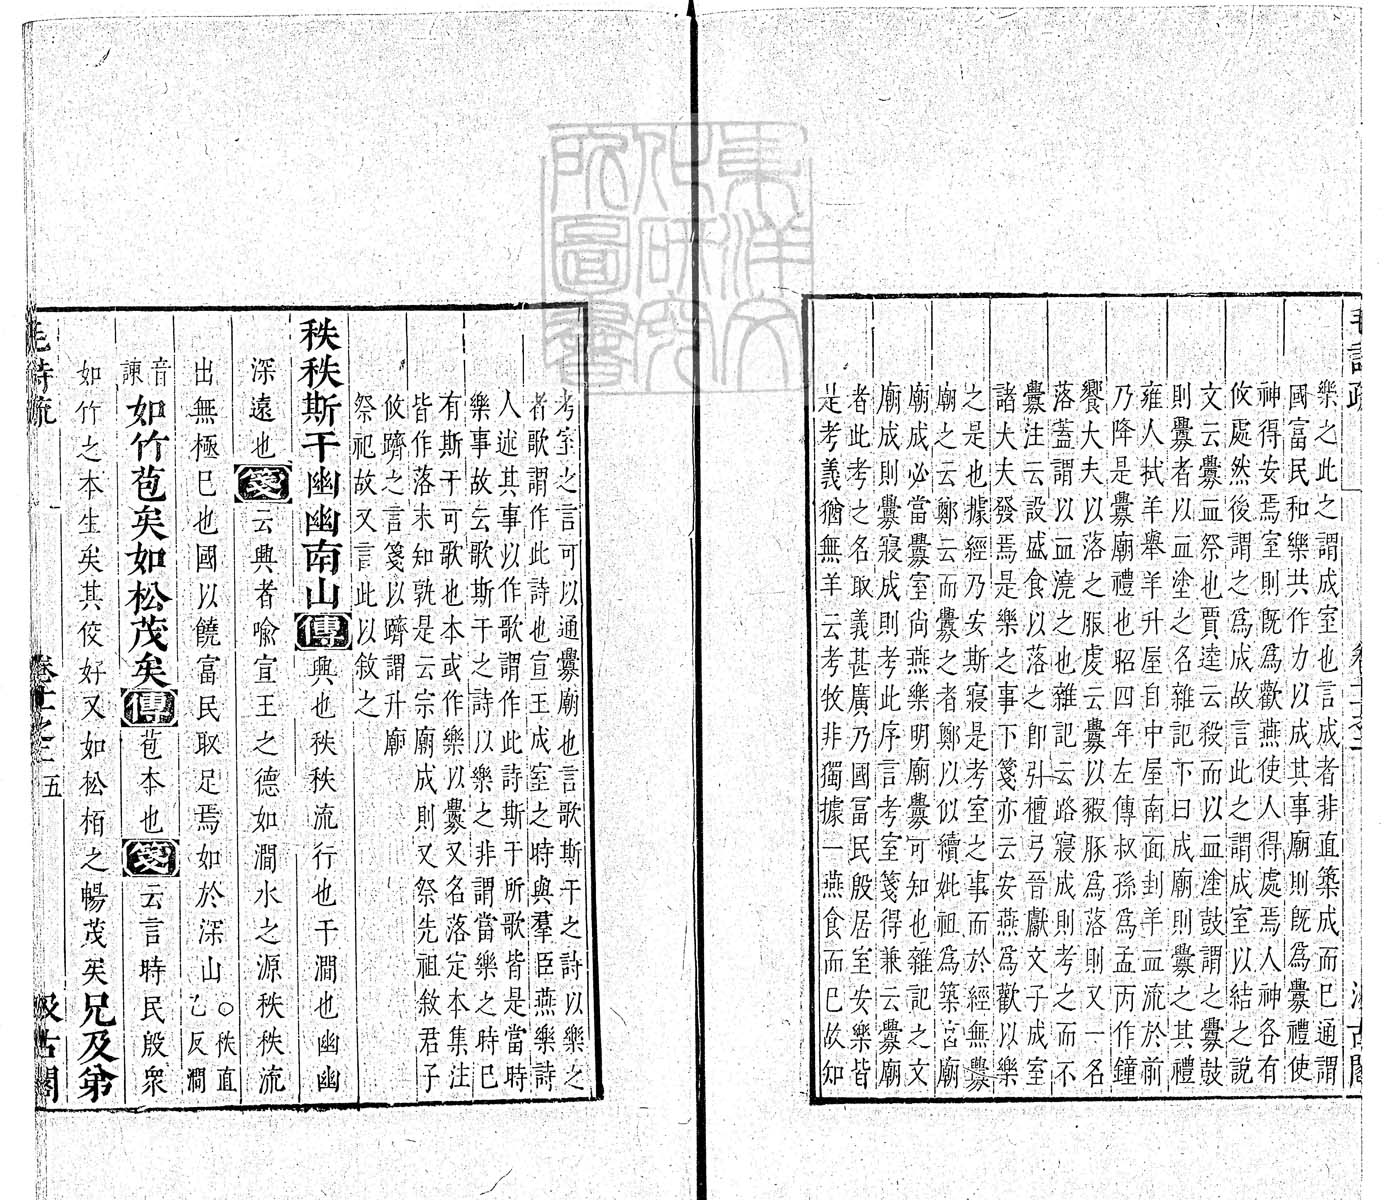 樂之此之謂成室也言成者非直築成而已通謂
國富民和樂共作力以成其事廟則既爲釁禮使
神得安焉室則既爲歡燕使人得處焉人神各有
攸處然後謂之爲成故言此之謂成室以結之說
文云釁血祭也賈逵云殺而以血塗鼓謂之釁鼓
則釁者以血塗之名雜記下曰成廟則釁之其禮
雍人拭羊舉羊升屋自中屋南面刲羊血流於前
乃降是釁廟禮也昭四年左傳叔孫爲孟丙作鐘
饗大夫以落之服虔云釁以豭豚爲落則又一名
落蓋謂以血澆之也雜記云路寢成則考之而不
釁注云設盛食以落之即引檀弓晉獻文子成室
諸大夫發焉是樂之事下箋亦云安燕爲歡以樂
之是也據經乃安斯寢是考室之事而於經無釁
廟之云鄭云而釁之者鄭以似續妣祖爲築宮廟
廟成必當釁室尚燕樂明廟釁可知也雜記之文
廟成則釁寢成則考此序言考室箋得兼云釁廟
者此考之名取義甚廣乃國富民殷居室安樂皆
是考義猶無羊云考牧非獨據一燕食而已故知
考室之言可以通釁廟也言歌斯干之詩以樂之
者歌謂作此詩也宣王成室之時與羣臣燕樂詩
人述其事以作歌謂作此詩斯干所歌皆是當時
樂事故云歌斯干之詩以樂之非謂當樂之時已
有斯干可歌也本或作樂以釁又名落定本集注
皆作落未知孰是云宗廟成則又祭先祖敘君子
攸躋之言箋以躋謂升廟
祭祀故又言此以敘之
秩秩斯干幽幽南山傳興也秩秩流行也干澗也幽幽
深遠也箋云興者喻宣王之德如澗水之源秩秩流
出無極已也國以饒富民取足焉如於深山○秩直乙反澗
音諫如竹苞矣如松茂矣傳苞本也箋云言時民殷衆
如竹之本生矣其佼好又如松柏之暢茂矣兄及弟
毛詩疏 卷十一之二 五 汲古閣